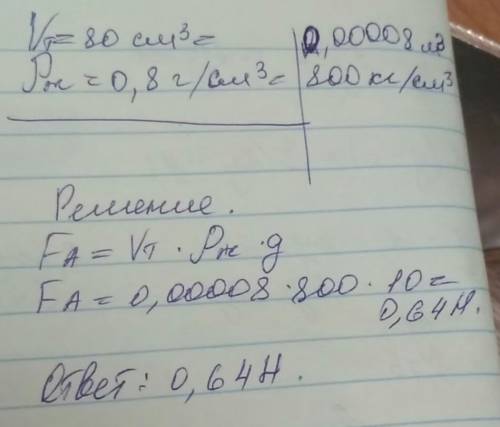 Vт = 80 см³ = 0,00008 м³
Рж = 0,8 г/см³ = 800 кг/см³
Решение.
FA = Vт · Рж · g
FA = 0,00008 · 800 · 10 =
0,64 Н.
Ответ: 0,64 Н.